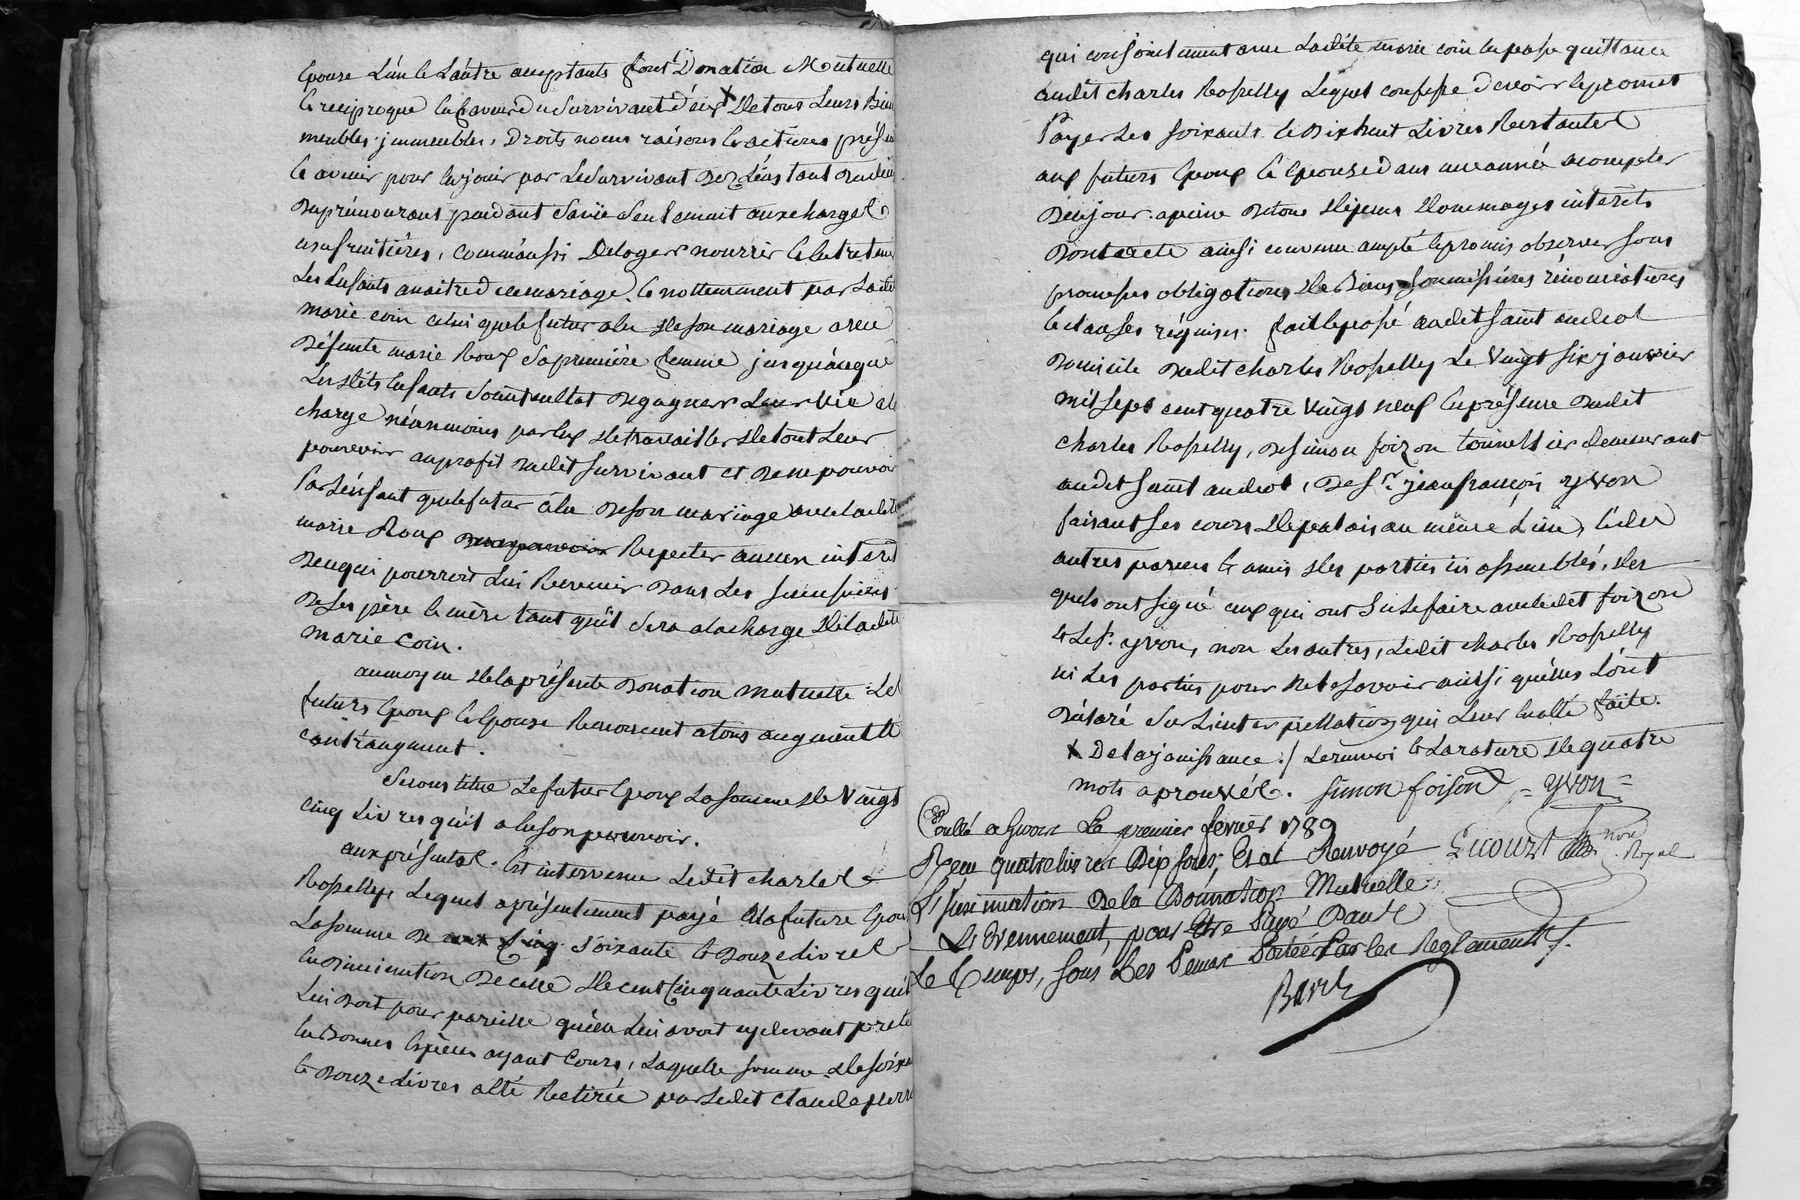 Epouse L'un et L'autre acceptants font Donation Mutuelle
et reciproque en faveur du Survivant d'eux x de tous Leurs Biens
meubles, immeubles, Droits noms raisons et actions présens
et avenir pour en jouir par Le Survivant Dez L'instant du decés
du prémourant pendant Sa vie Seulement aux charges
usufruitières, comm'aussi De loger nourrir et entretenir
Les Enfants a naitre d ce mariage, et nottemment par La dite
marie coin celui que le futur a eu de son mariage avec
Défunte marie Roux Sa première femme jusqu'àceque
Les dits Enfants Soint en Etat De gagner Leur vie a la
charge néanmoins par Eux de travailler de tout Leur
pouvoir au profit dudit survivant et De ne pouvoir
Par L'énfant que le futur à Eu De son mariage avec ladite
marie Roux Repeter aucun intérêt
De ce qui pourroit Lui Revenir Dans Les successions
De Ses père et mère tant qu'il Sera a la charge de ladite
marie coin.
au moyen de la présente Donation mutuelle Les
futurs Epoux et Epouse Renoncent a tous augment et
contraugment.
Se constitue Le futur Epoux La somme de Vingt
cinq Livres qu'il a En son pouvoir.
aux présentes Est intervenu Ledit charles
Rosselly, Lequel a présentement payé a la future Epouse
La somme De Soixante et Douze Livres
en Diminution De celle de cent Cinquante Livres qu'il
Lui Doit pour pareille qu'elle Lui avoit cy devant preté
En Bonnes Espèces ayant Cours, Laquelle somme de soixante
et Douze Livres a Eté Retirée par Ledit Claude pierre
qui conjointement avec Ladite marie coin en passe quittance
audit charles Rosselly Lequel confesse devoir et promet
Payer Les soixante et Dix huit Livres Restantes
aux futurs Epoux et Epouse dans une année a compter
De ce jour a peine De tous depens dommages interets
Dont acte ainsi convenu accepté et promis observer sous
promesses obligations de Biens soumissions rénonciations
et clauses réquises. fait et passé audit saint andeol
Domicile dudit charles Rosselly Le Vingt six janvier
mil sept cent quatre Vingt neuf En présence dudit
charles Rosselly, De simon foizon tonnellier demeurant
audit saint andeol, De Sr. jean françois yvon
faisant ses cours de palais au même Lieu, et des
autres parens et amis des parties ici assemblés, des
quels ont signé ceux qui ont Su Le faire avec ledit foizon
et Le Sr. yvon, non Les autres, Ledit charles Rosselly
ni Les parties pour ne Le Savoir aussi qu'elles L'ont
Déclaré Sur L'interpellation qui Leur En a Eté faite.
x De la jouissance ./ Le renvoi et La rature de quatre
mots aprouvés. simon foison = yvon =
Contllé a Givors Le premier fevrier 1789
Reçu quatre livres Dix sous, Et al Renvoyé
L'insinuation De la Donnation Mutuelle
Le Evennement, pour Etre Payé Dans
Le Temps, sous Les Peines Portées Par les Reglements.